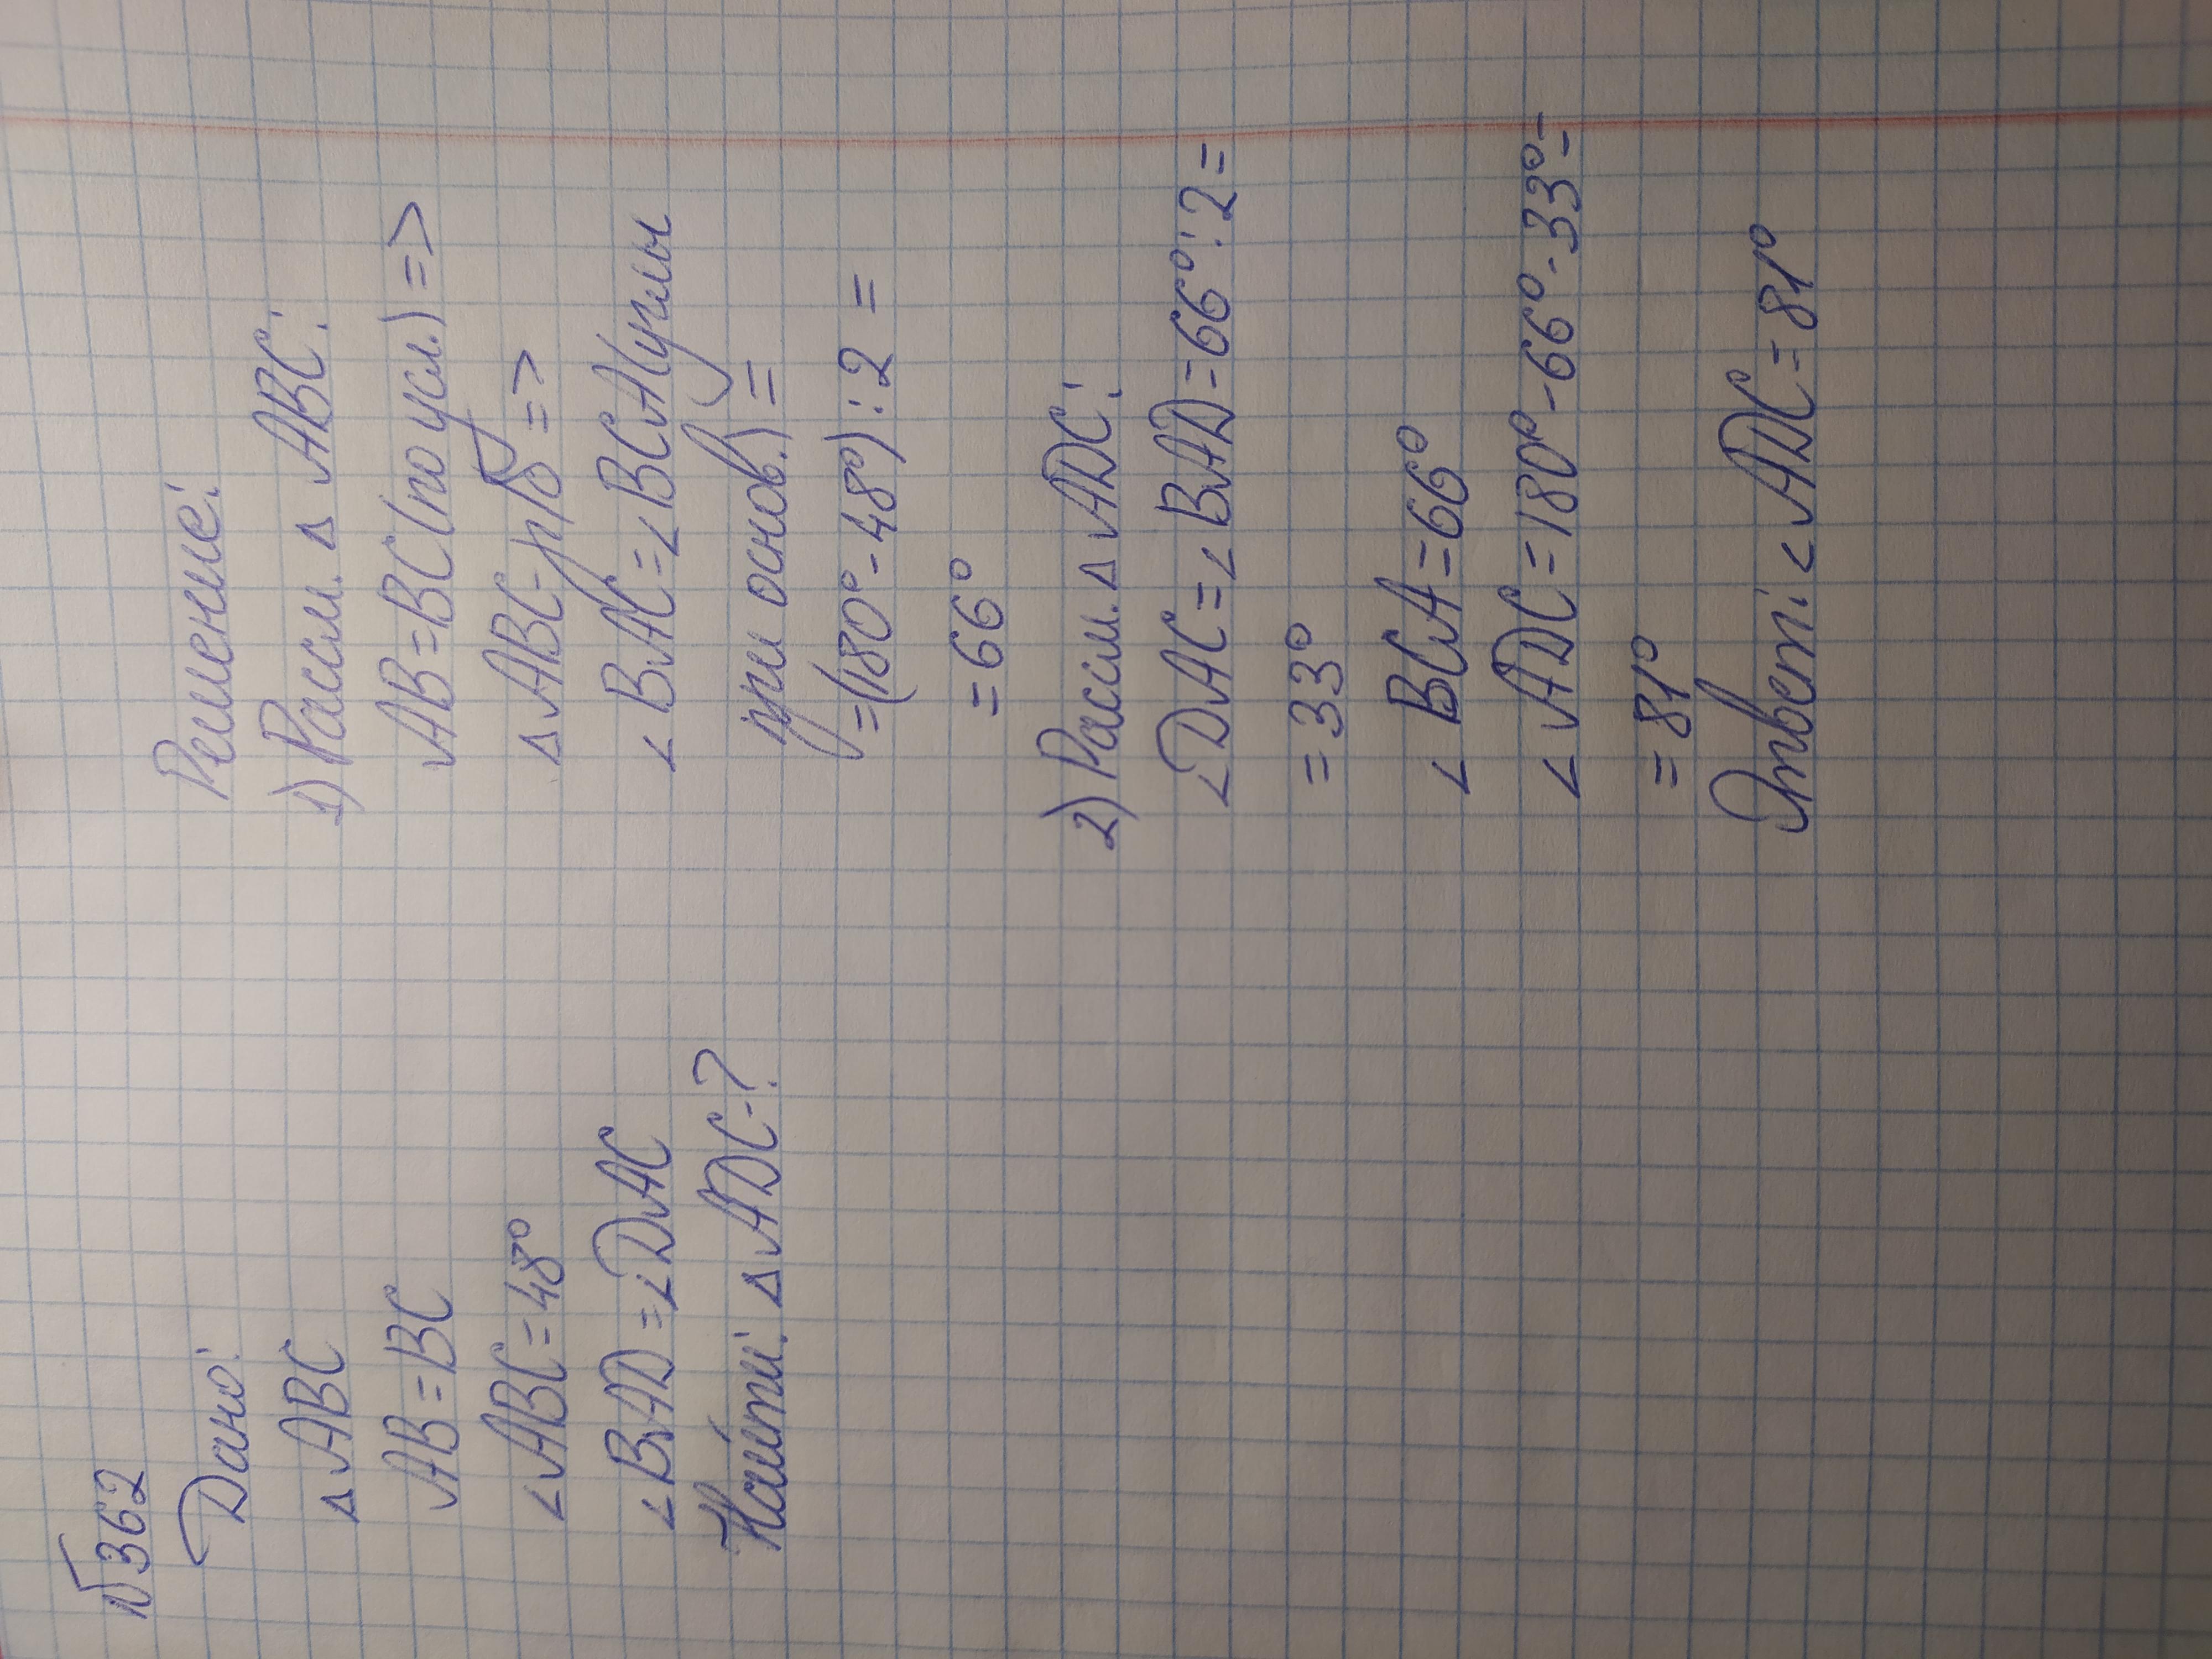 №362
Дано:
△ABC
AB=BC
∠ABC=48°
∠BAD=∠DAC
Найти: △ADC-?
Решение:
1) Рассм. △ ABC:
AB=BC(по усл.)=>
△ABC-р/б=>
∠BAC=∠BCA(углы
при основ.)=
=(180°-48°):2=
=66°
2) Рассм. △ADC:
∠DAC=∠BAD=66°:2=
=33°
∠BCA=66°
∠ADC=180°-66°-33°=
=81°
Ответ: ∠ADC=81°